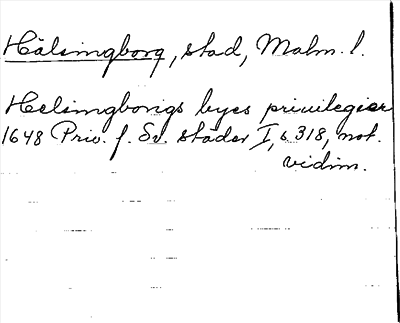 Hälsingborg, stad, Malm. l.
Helsingborigs byes priuilegier
1648 Priv. f. Sv. städer I, s 318, not.
vidim.